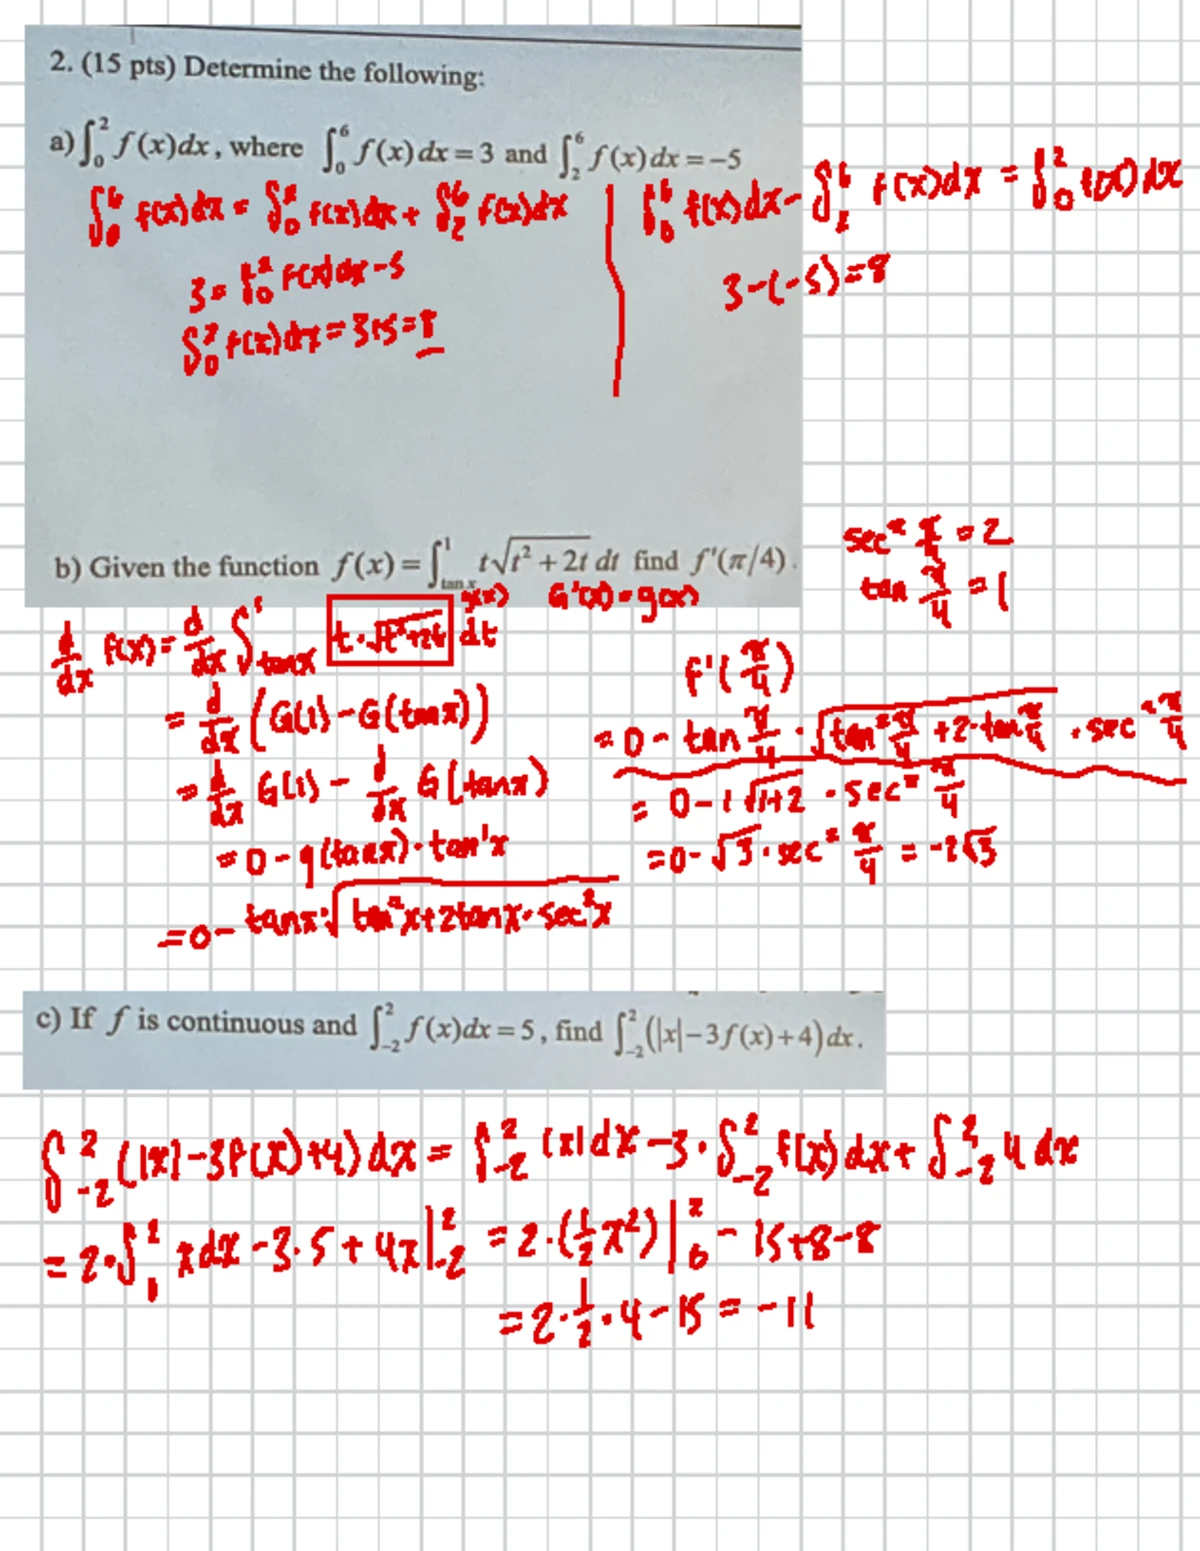 2. (15 pts) Determine the following:
a) ∫₀² f(x)dx, where ∫₀⁶ f(x)dx = 3 and ∫₂⁶ f(x)dx = -5
∫₀⁶ f(x)dx = ∫₀² f(x)dx + ∫₂⁶ f(x)dx
3 = ∫₀² f(x)dx - 5
∫₀² f(x)dx = 3+5 = 8
∫₀⁶ f(x)dx - ∫₂⁶ f(x)dx = ∫₀² f(x)dx
3-(-5)=8
b) Given the function f(x) = ∫_{tan x}^1 t√(t² + 2t) dt find f'(π/4).
g(x) G'(x) = g(x)
sec² π/4 = 2
tan π/4 = 1
d/dx f(x) = d/dx ∫_{tanx}^1 t·√(t²+2t) dt
= d/dx (G(1) - G(tanx))
= d/dx G(1) - d/dx G(tanx)
= 0 - g(tanx)·tan'x
= 0 - tanx·√(tan²x+2tanx·sec²x)
f'(π/4)
= 0 - tan π/4 · √(tan² π/4 + 2·tan π/4) · sec² π/4
= 0 - 1√(1+2) · sec² π/4
= 0 - √3 · sec² π/4 = -2√3
c) If f is continuous and ∫₋₂² f(x)dx = 5, find ∫₋₂² (|x| - 3f(x) + 4) dx.
∫₋₂² (|x|-3f(x)+4)dx = ∫₋₂² |x|dx - 3·∫₋₂² f(x)dx + ∫₋₂² 4dx
= 2·∫₀² xdx - 3·5 + 4x|₋₂² = 2·(½x²)|₀² - 15+8-8
= 2·½·4 - 15 = -11